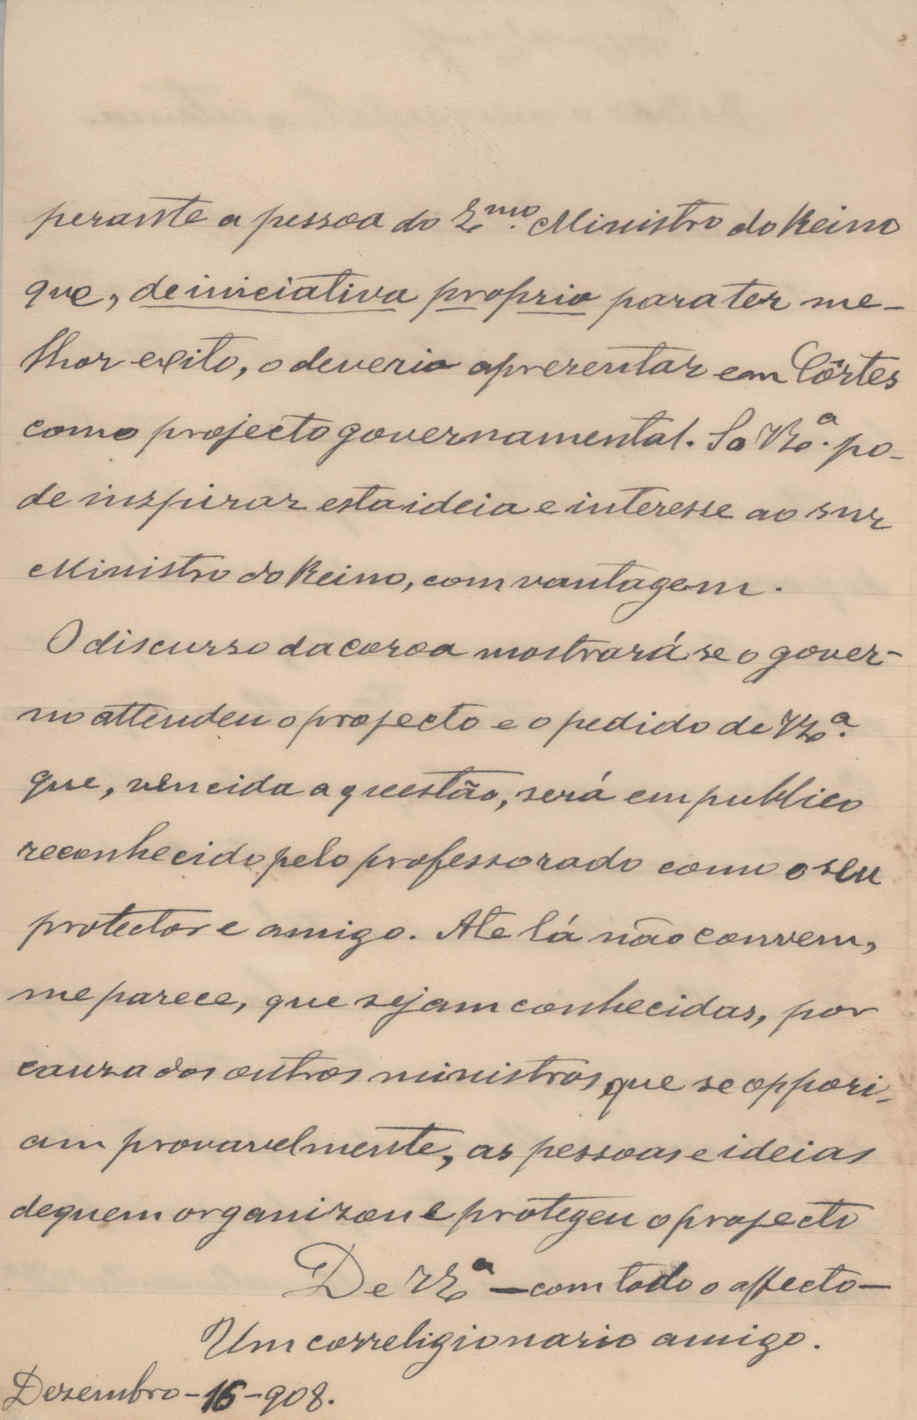 perante a pessoa do Exmo. Ministro do Reino
que, de iniciativa propria para ter me-
lhor exito, o deveria aprezentar em Côrtes
como projecto governamental. So V.Ex.ª po-
de inspirar esta ideia e interesse ao snr
Ministro do Reino, com vantagem.
O discurso da coroa mostrará se o gover-
no attendeu o projecto e o pedido de V.Ex.ª
que, vencida a questão, será em publico
reconhecido pelo professorado como o seu
protector e amigo. Ate lá não convem,
me parece, que sejam conhecidas, por
cauza dos outros ministros que se oppori-
am provavelmente, as pessoas e ideias
de quem organizou e protegeu o projecto
De V.Ex.ª – com todo o affecto –
Um correligionario amigo.
Dezembro – 16 – 908.